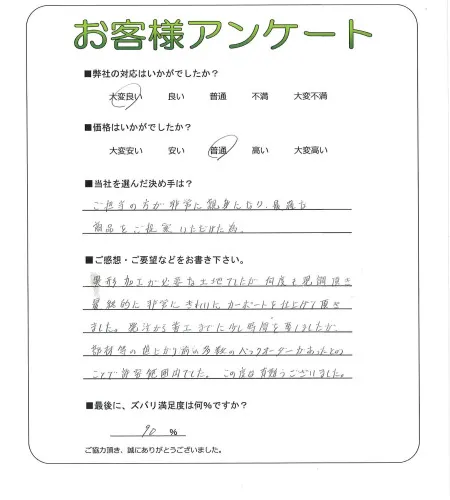 お客様アンケート
■弊社の対応はいかがでしたか？
大変良い 良い 普通 不満 大変不満
■価格はいかがでしたか？
大変安い 安い 普通 高い 大変高い
■当社を選んだ決め手は？
ご担当の方が非常に親身になり、最適な
商品をご提案いただけた為。
■ご感想・ご要望などをお書き下さい。
異形加工が必要な土地でしたが 何度も現調頂き
最終的に非常にきれいにカーポートを仕上げて頂き
ました。発注から着工までに少し時間を要しましたが、
部材等の値上がり前の多数のバックオーダーがあったとの
ことで許容範囲内でした。この度は有難うございました。
■最後に、ズバリ満足度は何％ですか？
90 ％
ご協力頂き、誠にありがとうございました。